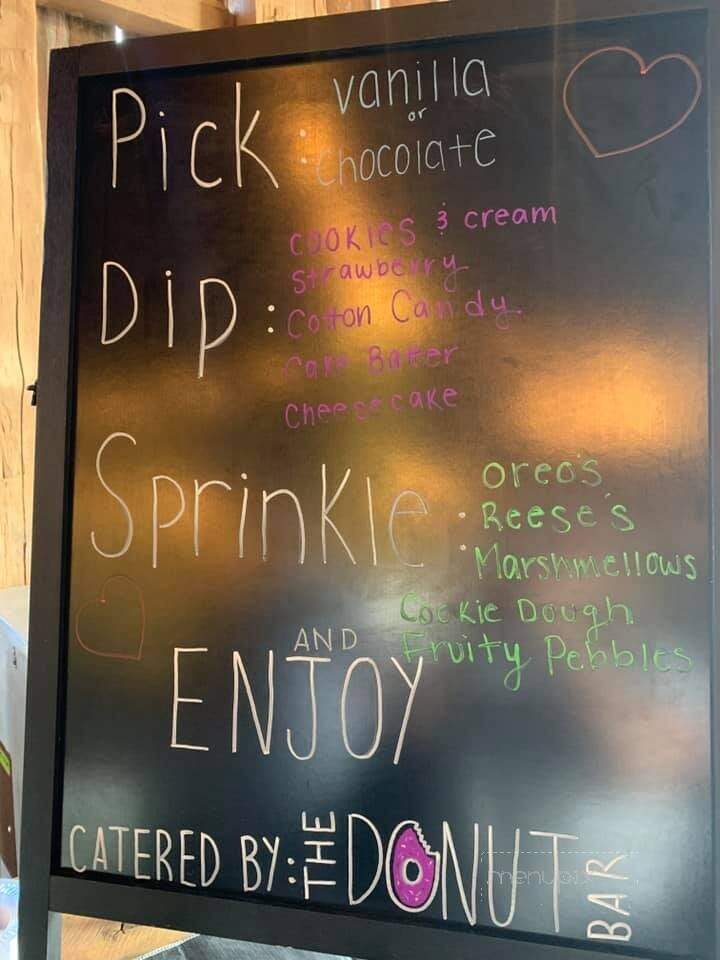 Pick: vanilla
or
chocolate
Dip: cookies & cream
Strawberry
Cotton Candy.
Cake Batter
Cheesecake
Sprinkle: Oreo's
Reese's
Marshmellows
Cookie Dough
Fruity Pebbles
AND
ENJOY
CATERED BY: THE DONUT BAR